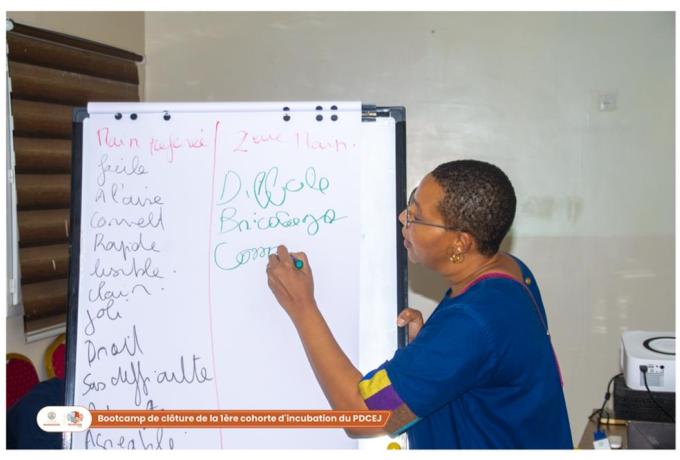 Main preferée
facile
A l'aise
Correct
Rapide
lisible.
clair.
Joli
Droit
Sas difficulté
Agreable
2eme Main.
Difficile
Bricolage
Com
Bootcamp de clôture de la 1ère cohorte d'incubation du PDCEJ